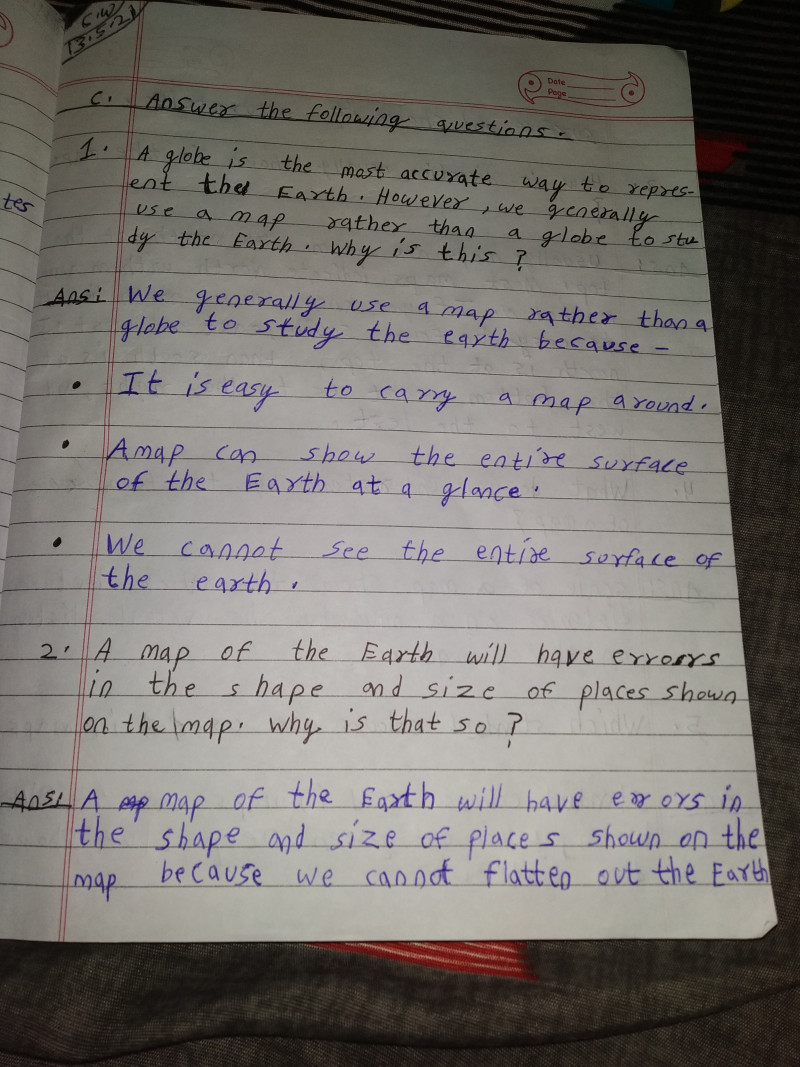 C.W
13.5.21
Date
Page
tes
C. Answer the following questions.
1. A globe is the most accurate way to repres-
ent the Earth. However, we generally
use a map rather than a globe to stu
dy the Earth. Why is this?
Ans: We generally use a map rather than a
globe to study the earth because -
• It is easy to carry a map around.
• A map can show the entire surface
of the Earth at a glance.
• We cannot see the entire surface of
the earth.
2. A map of the Earth will have errors
in the shape and size of places shown
on the map. Why is that so?
Ans: A map of the Earth will have errors in
the shape and size of places shown on the
map because we cannot flatten out the Earth